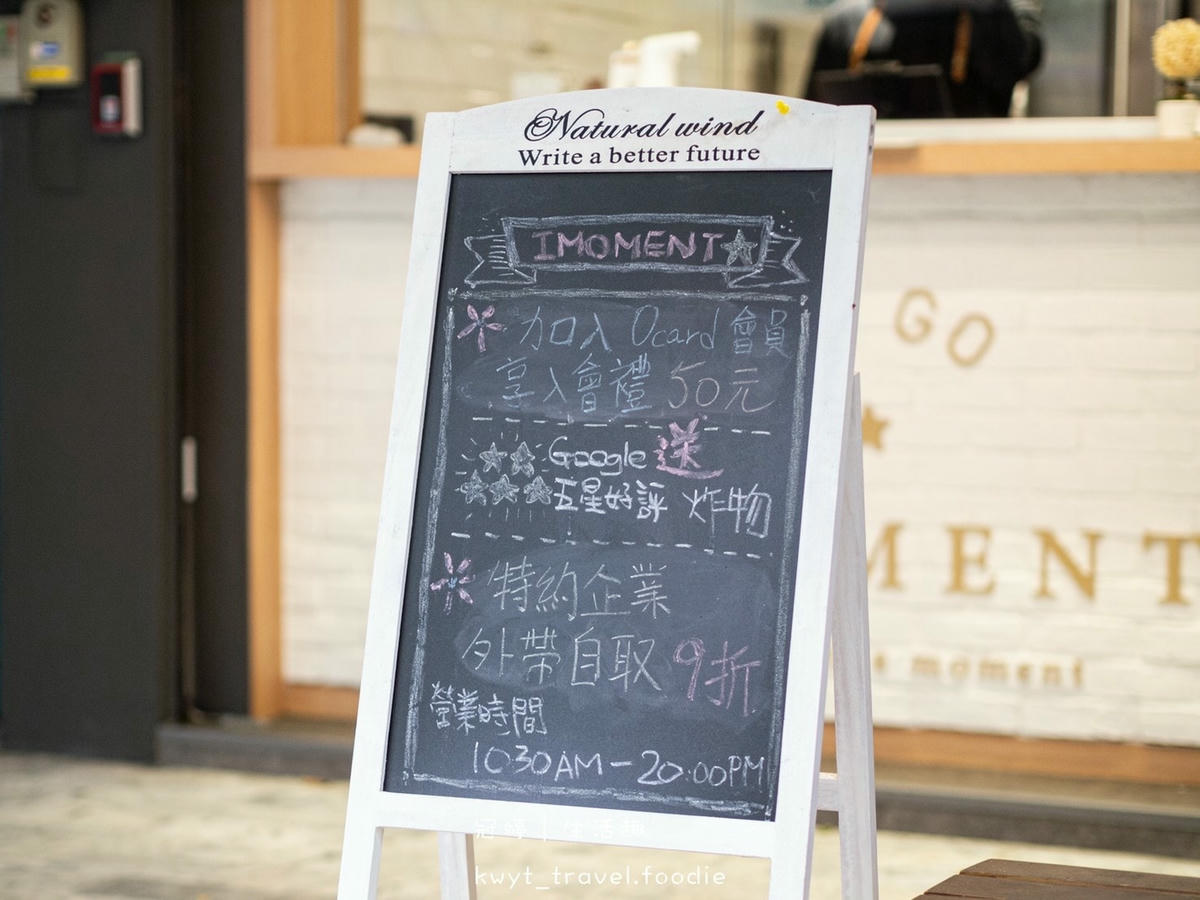 Natural wind
Write a better future
IMOMENT
加入 Ocard 會員
享入會禮 50元
Google 送
五星好評 炸物
特約企業
外帶自取 9折
營業時間
10:30AM-20:00PM
GO
MENT
moment
冠婷 | 生活趣
kwyt_travel.foodie